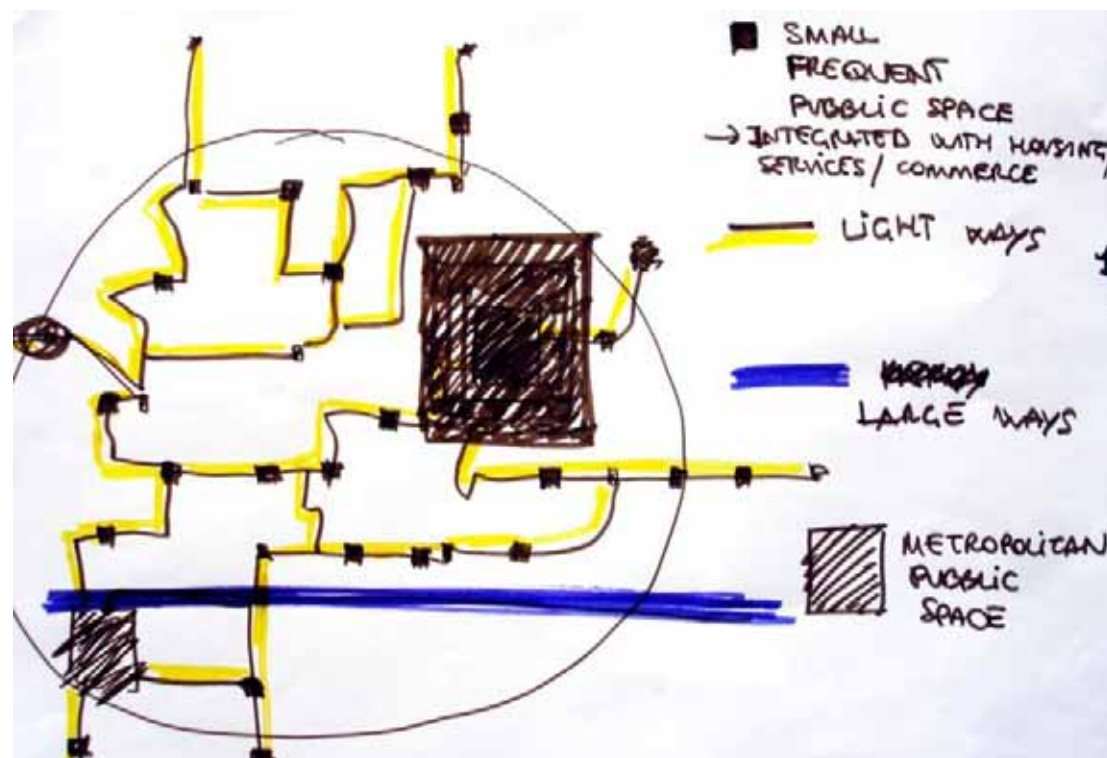 SMALL
FREQUENT
PUBBLIC SPACE
→ INTEGRATED WITH HOUSING/
SERVICES / COMMERCE
LIGHT WAYS
LARGE WAYS
METROPOLITAN
PUBBLIC
SPACE